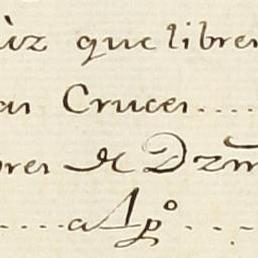 úz que libren
as Cruces....
bres de Dzm
....a Ap.º...